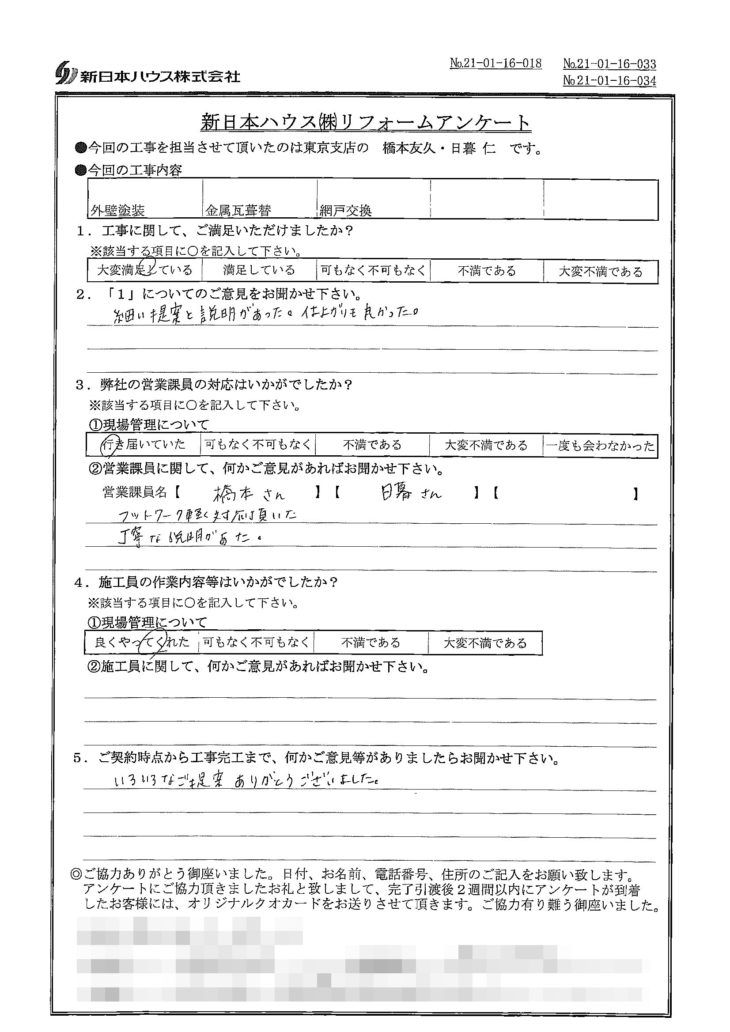 新日本ハウス株式会社
№21-01-16-018 №21-01-16-033
№21-01-16-034
新日本ハウス㈱リフォームアンケート
●今回の工事を担当させて頂いたのは東京支店の 橋本友久・日暮 仁 です。
●今回の工事内容
外壁塗装 金属瓦葺替 網戸交換
1．工事に関して、ご満足いただけましたか？
※該当する項目に○を記入して下さい。
大変満足している 満足している 可もなく不可もなく 不満である 大変不満である
2．「1」についてのご意見をお聞かせ下さい。
細い提案と説明があった。仕上がりも良かった。
3．弊社の営業課員の対応はいかがでしたか？
※該当する項目に○を記入して下さい。
①現場管理について
行き届いていた 可もなく不可もなく 不満である 大変不満である 一度も会わなかった
②営業課員に関して、何かご意見があればお聞かせ下さい。
営業課員名【 橋本さん 】【 日暮さん 】【 】
フットワーク軽く対応頂いた
丁寧な説明があた。
4．施工員の作業内容等はいかがでしたか？
※該当する項目に○を記入して下さい。
①現場管理について
良くやってくれた 可もなく不可もなく 不満である 大変不満である
②施工員に関して、何かご意見があればお聞かせ下さい。
5．ご契約時点から工事完工まで、何かご意見等がありましたらお聞かせ下さい。
いろいろなご提案ありがとうございました。
◎ご協力ありがとう御座いました。日付、お名前、電話番号、住所のご記入をお願い致します。
アンケートにご協力頂きましたお礼と致しまして、完了引渡後2週間以内にアンケートが到着
したお客様には、オリジナルクオカードをお送りさせて頂きます。ご協力有り難う御座いました。